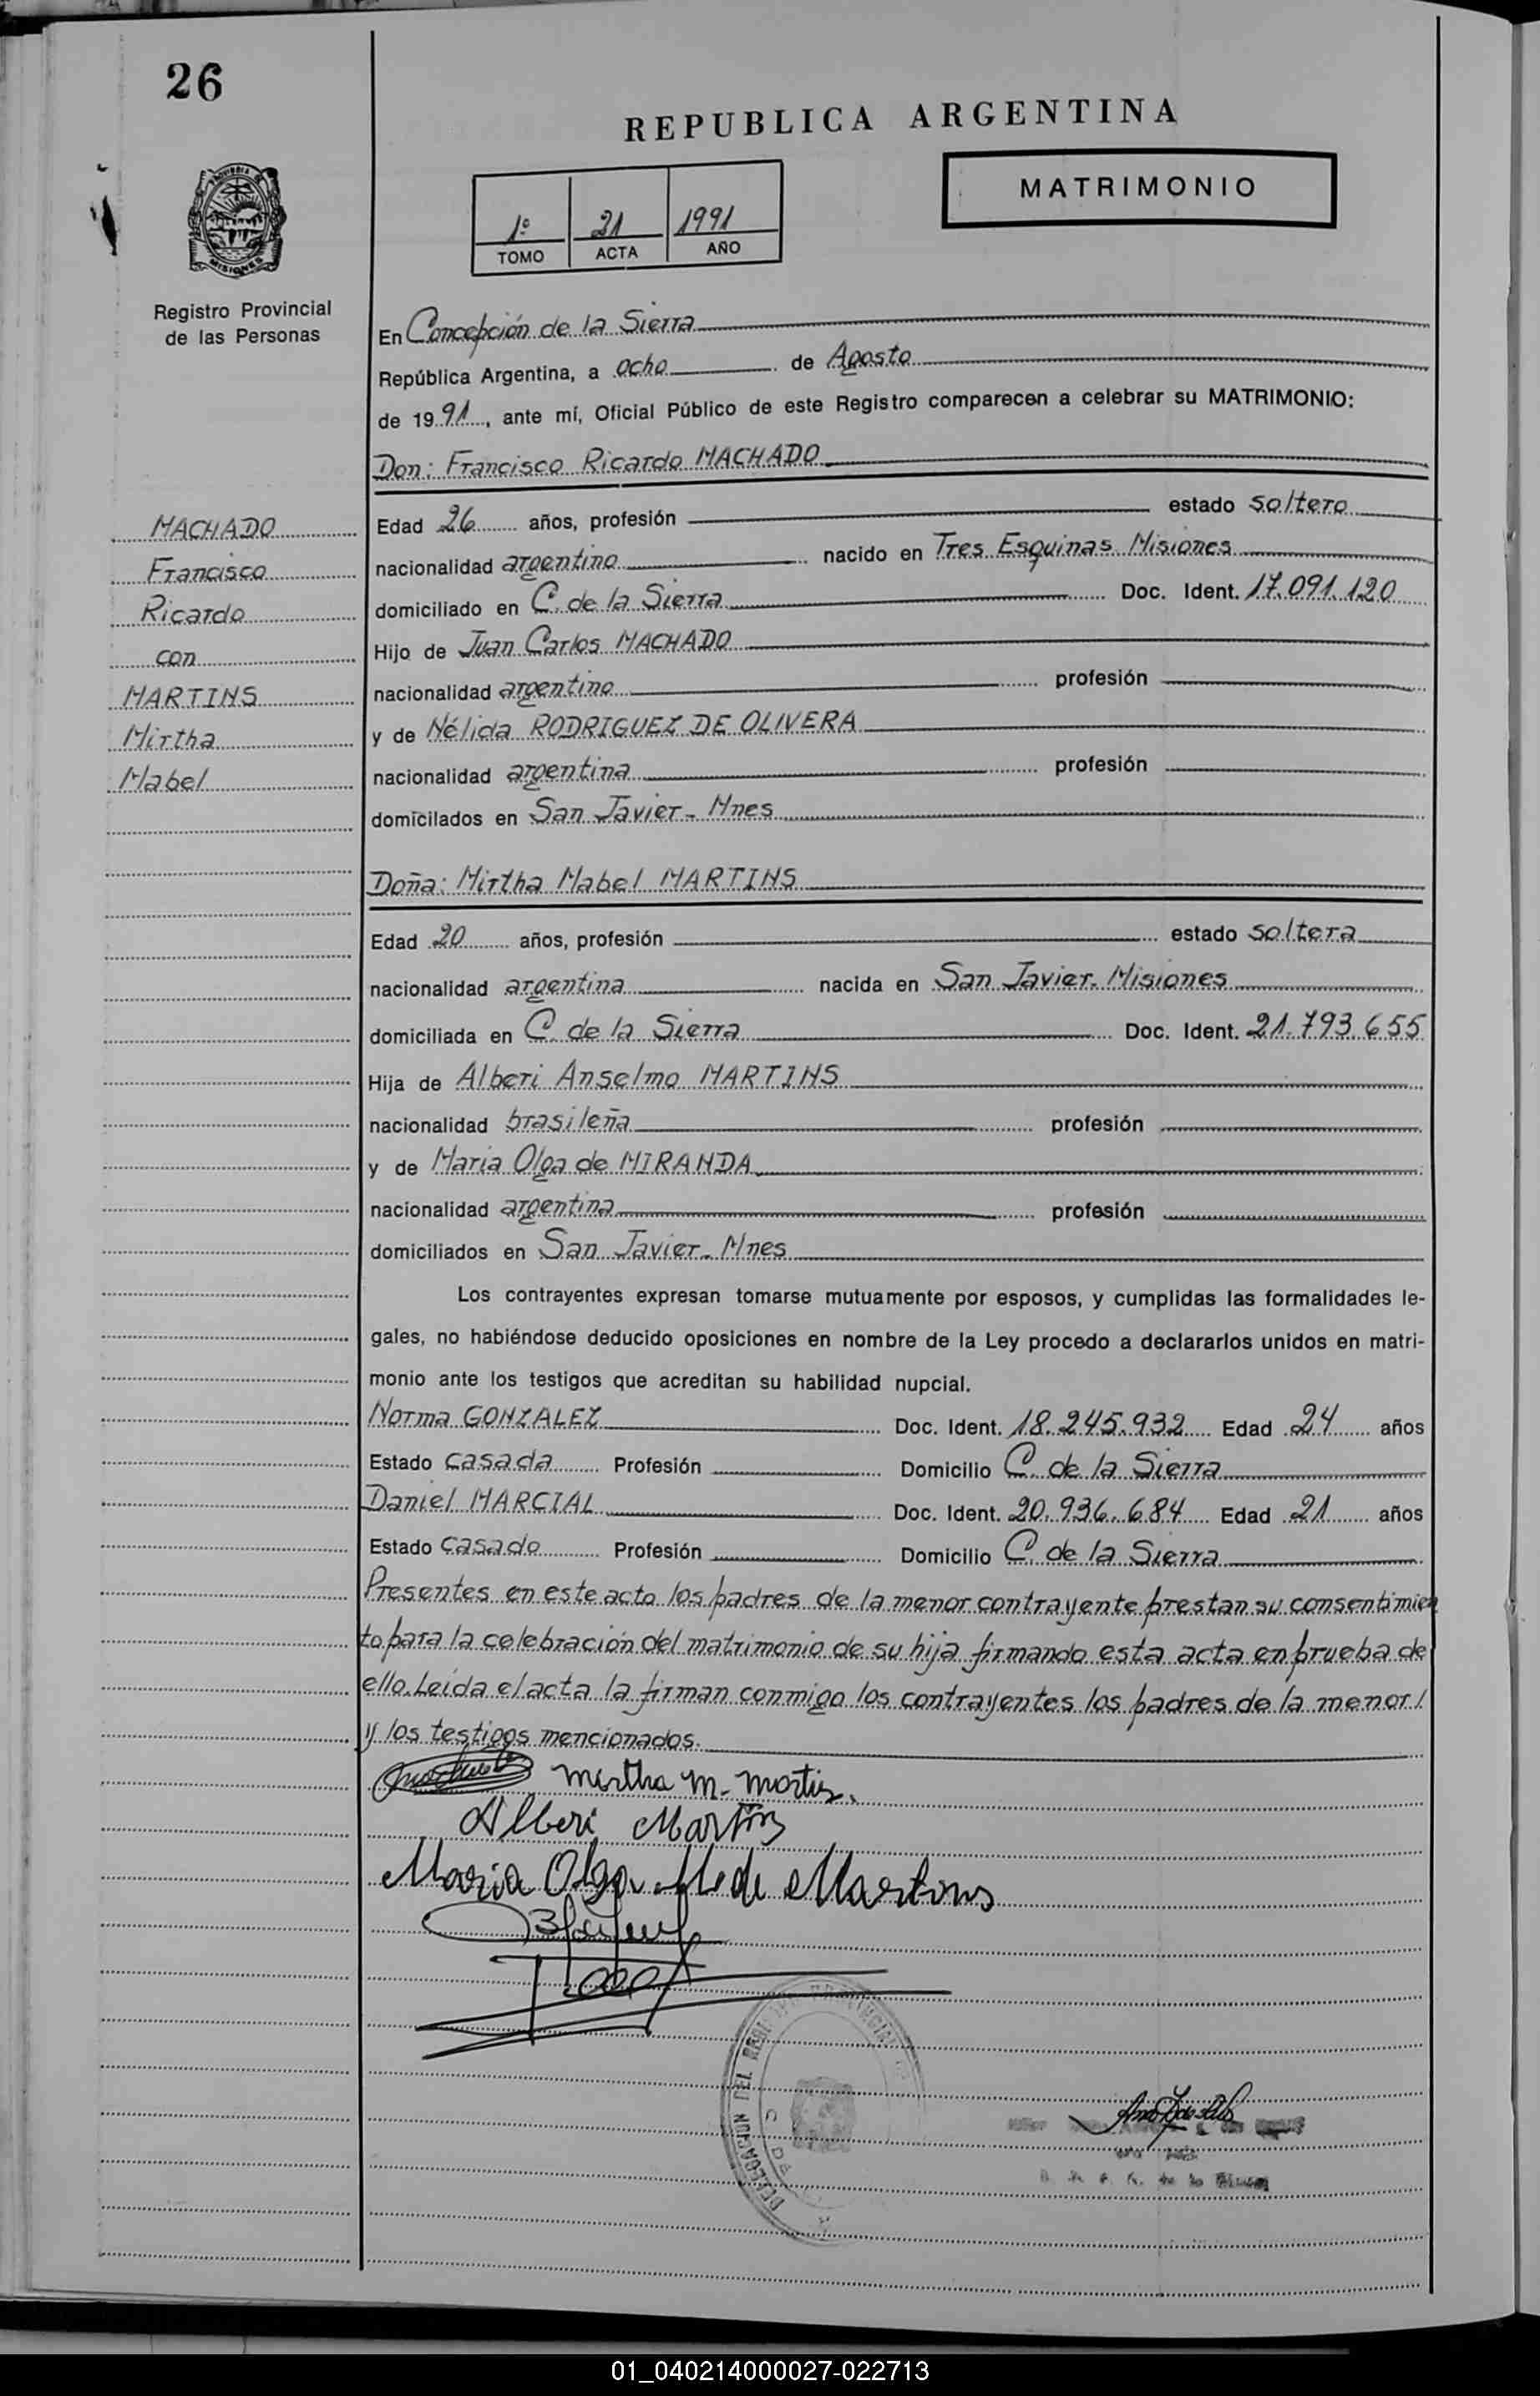 26
REPUBLICA ARGENTINA
MATRIMONIO
1º 21 1991
TOMO ACTA AÑO
PROVINCIA DE
MISIONES
Registro Provincial
de las Personas
En Concepción de la Sierra
República Argentina, a ocho de Agosto
de 1991, ante mí, Oficial Público de este Registro comparecen a celebrar su MATRIMONIO:
Don: Francisco Ricardo MACHADO
MACHADO
Francisco
Ricardo
con
MARTINS
Mirtha
Mabel
Edad 26 años, profesión estado soltero
nacionalidad argentino nacido en Tres Esquinas Misiones
domiciliado en C. de la Sierra Doc. Ident. 17.091.120
Hijo de Juan Carlos MACHADO
nacionalidad argentino profesión
y de Nélida RODRIGUEZ DE OLIVERA
nacionalidad argentina profesión
domicilados en San Javier - Mnes
Doña: Mirtha Mabel MARTINS
Edad 20 años, profesión estado soltera
nacionalidad argentina nacida en San Javier - Misiones
domiciliada en C. de la Sierra Doc. Ident. 21.793.655
Hija de Alberi Anselmo MARTINS
nacionalidad brasileña profesión
y de Maria Olga de MIRANDA
nacionalidad argentina profesión
domiciliados en San Javier - Mnes
Los contrayentes expresan tomarse mutuamente por esposos, y cumplidas las formalidades le-
gales, no habiéndose deducido oposiciones en nombre de la Ley procedo a declararlos unidos en matri-
monio ante los testigos que acreditan su habilidad nupcial.
Norma GONZALEZ Doc. Ident. 18.245.932 Edad 24 años
Estado casada Profesión Domicilio C. de la Sierra
Daniel MARCIAL Doc. Ident. 20.936.684 Edad 21 años
Estado casado Profesión Domicilio C. de la Sierra
Presentes en este acto los padres de la menor contrayente prestan su consentimien
to para la celebración del matrimonio de su hija firmando esta acta en prueba de
ello. Leída el acta la firman conmigo los contrayentes los padres de la menor /
y los testigos mencionados.
Mirtha M. Martins
Alberi Martins
Maria Olga de Martins
DELEGACION DEL REGISTRO PROVINCIAL
C. DE
de la
01_040214000027-022713